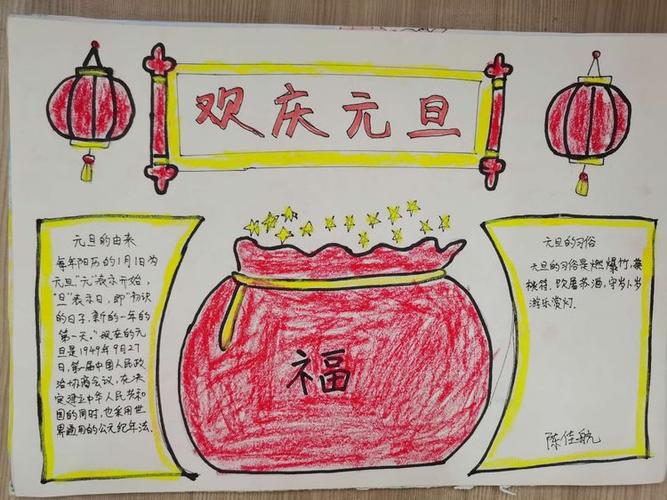 欢庆元旦
元旦的由来
每年阳历的1月1日为
元旦"元"表示开始,
"旦"表示日,即"初识
的日子.新的一年的
第一天."现在的元
旦是1949年9月27
日,第一届中国人民政
治协商会议,在决
定建立中华人民共和
国的同时,也采用世
界通用的公元纪年法.
福
元旦的习俗
元旦的习俗是燃爆竹,
桃符.饮屠苏酒,守岁卜岁
游乐赏灯.
陈佳航